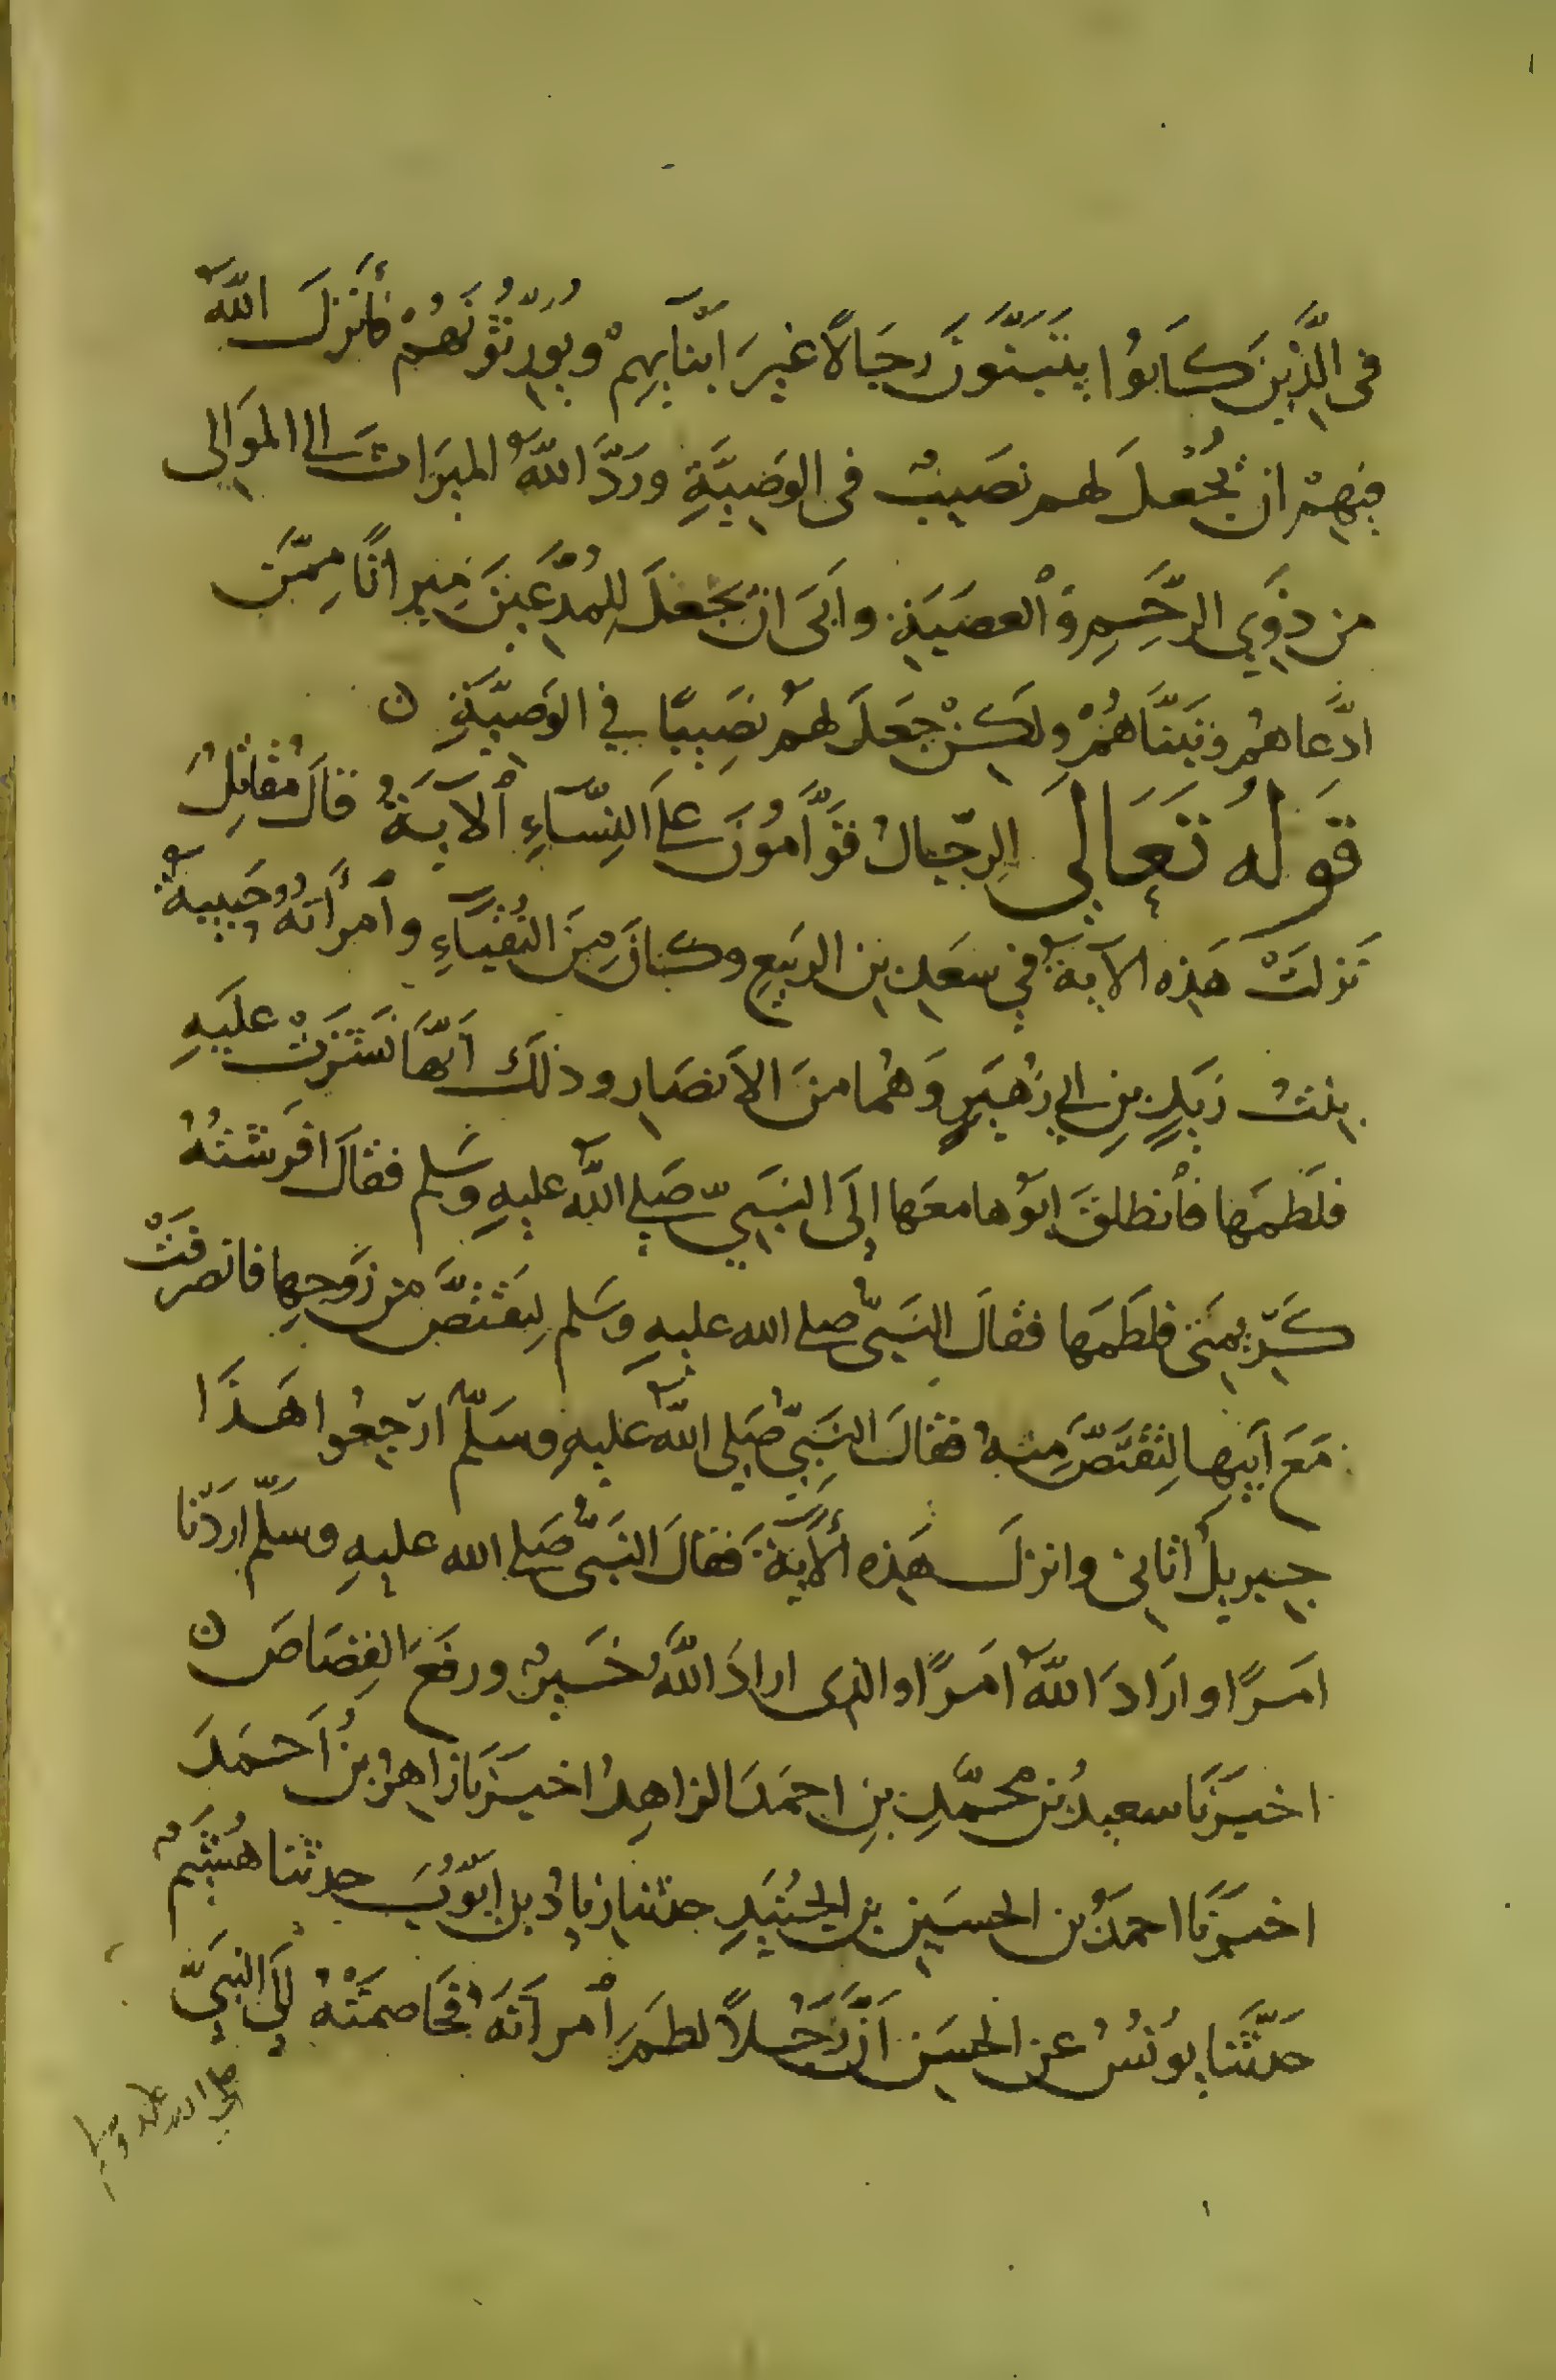 في الَّذِينَ كَانوُا يتَبَنَّونَ رجَالًا غيرَ ابْنَايهِمْ ويُورِّثُونَهُمْ فأَنزلَ اللهُ
فيهِمْ ان يُجْعلَ لهم نصَيبٌ في الوَصِيَّةِ ورَدَّ اللهُ الميرَاثَ الى الموَالي
من ذوِي الرَّحِمِ وَالعصَبَةِ وابَى ان يجْعلَ لِلمُدَّعِينَ مِيراثًا مِمَّن
ادَّعاهُم وتبَنَّاهُمْ ولكنْ جَعَلَ لهمْ نصِيبًا في الوَصِيَّةِ ن
قَولُه تَعَالي الرِّجَالُ قوَّامُونَ علَى النِّسَآءِ الآيَةُ قالَ مُقاتِلُ
نزلَتْ هَذِه الآيةُ في سعَدِ بنِ الربَيعِ وكَانَ مِنَ النُقبَآءِ وامرأَتهُ حَبيبةُ
بِنتُ زَيدٍ بنِ ابي زُهَيرٍ وَهُما منَ الأنصَارِ وذلكَ أنّهَا نَشَزَتْ علَيهِ
فلَطَمَها فانطلقَ ابوُها معَها إلَى النبَيِّ صَلى اللهُ عليهِ وسَلم فقالَ افرَشتُهُ
كَرِيمَتي فلَطَمَها فقالَ النبَيُّ صلى الله عليهِ وسَلم لِتَقْتَصَّ من زَوجِها فانصرفَتْ
مَعَ أبيها لِتَقتَصَّ مِنهُ فقالَ النبَيُّ صَلى اللهُ عليهِ وسَلّمَ ارْجِعُوا هَذَا
جبريلُ اتاني وانزلَ هَذِه الآيَةَ فقالَ النبَيُّ صَلى الله عليهِ وسَلّم اردْنا
امَرًا وارَادَ اللهُ امَرًا والذي ارادَ اللهُ خَيرٌ ورفعَ القِصَاصَ ن
اخبَرَنَا سعيدُ بن محمَّدِ بنِ احمَدَ الزاهِدُ اخبَرنَا زاهرُ بنُ أحمَدَ
اخبَرنَا احمدُ بن الحسَينِ بنِ الجُنَيدِ حدثنا زيادُ بن ايّوُبَ حدثنا هُشَيمٌ
حَدَّثَنَا يوُنسُ عن الحسَنِ انَّ رَجُلاً لطمَ امرأتَهُ فخَاصمَتْهُ الَى النبَيِّ
صلى الله عليه وسلم